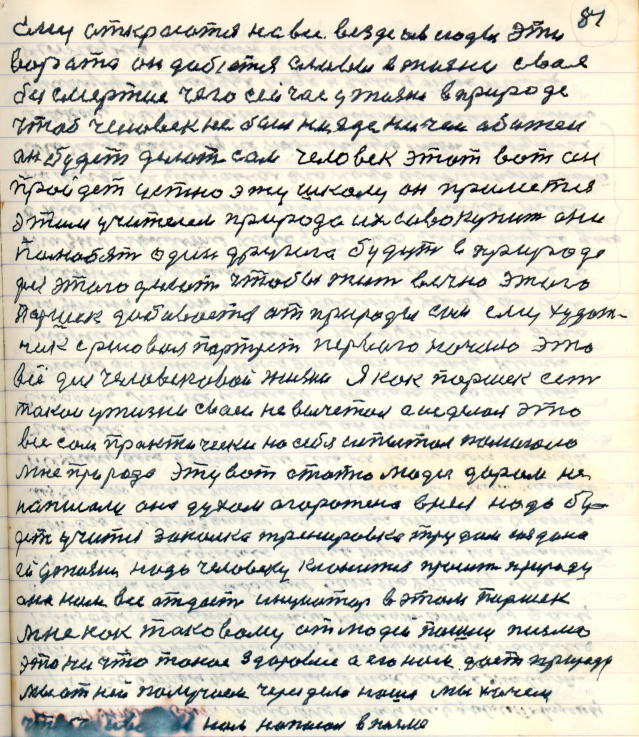 81
ему откроются на всё везде ... люди эти
ворота он добьется славы в жизни своя
бессмертие чего сейчас у жизни в природе
чтоб человек не был нигде ни чем обижен
он будет делать сам человек этот вот он
пройдет устно эту школу он примется
этим учителем природа их совокупит они
полюбят один друга будут в природе
для этого делать чтобы жить вечно этого
Паршек добивается от природы сам ему худож-
ник срисовал партрет первого начало это
всё для человековой жизни Я как паршек есть
такой у жизни своей не ... а сделал это
все сам практически на себя испытал помогала
мне природа эту вот статью люди даром не
написали она духом огорожена в ней надо бу-
дет учится закалка тренировка трудом создана
ей ... надо человеку клонится просить природу
она нам все отдаст инциатор в этом паршек
мне как таковому от людей пошли письма
это ни что такое здоровие а его нам дает природа
мы от ней получаем через дело наше мы хочем
чтобы ... нам написал в письмо